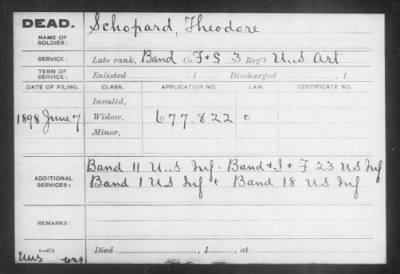 DEAD.
NAME OF SOLDIER:
Schopard, Theodore
SERVICE:
Late rank, Band Co. F & S 3 Reg't U.S Art
TERM OF SERVICE:
Enlisted , 1 Discharged , 1
DATE OF FILING. CLASS. APPLICATION NO. LAW. CERTIFICATE NO.
Invalid,
1898 June 7 Widow, 677.822 0
Minor,
ADDITIONAL SERVICES:
Band 11 U.S. Inf. Band & I & F 23 US Inf
Band 1 US Inf & Band 18 US Inf
REMARKS:
Died , 1 , at